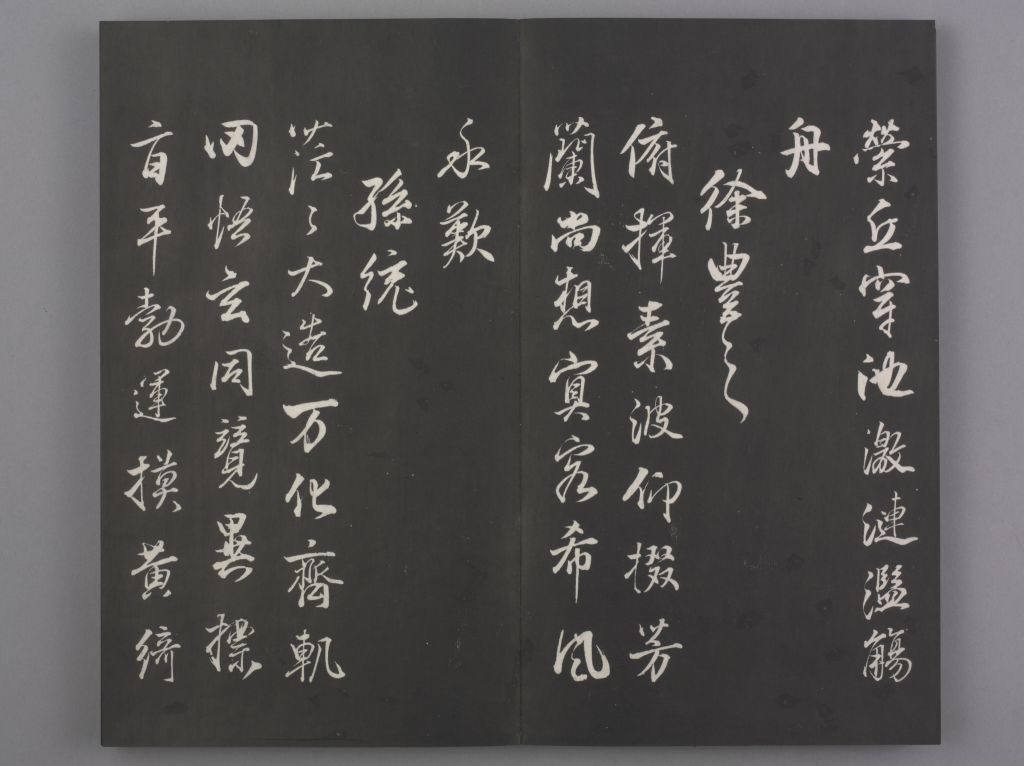 縈丘穿池激漣濫觴
舟
徐豊之
俯揮素波仰掇芳
蘭尚想客希風
永歎
孫統
茫〻大造万化齊軌
罔悟玄同異標
旨平勃運摸黃綺